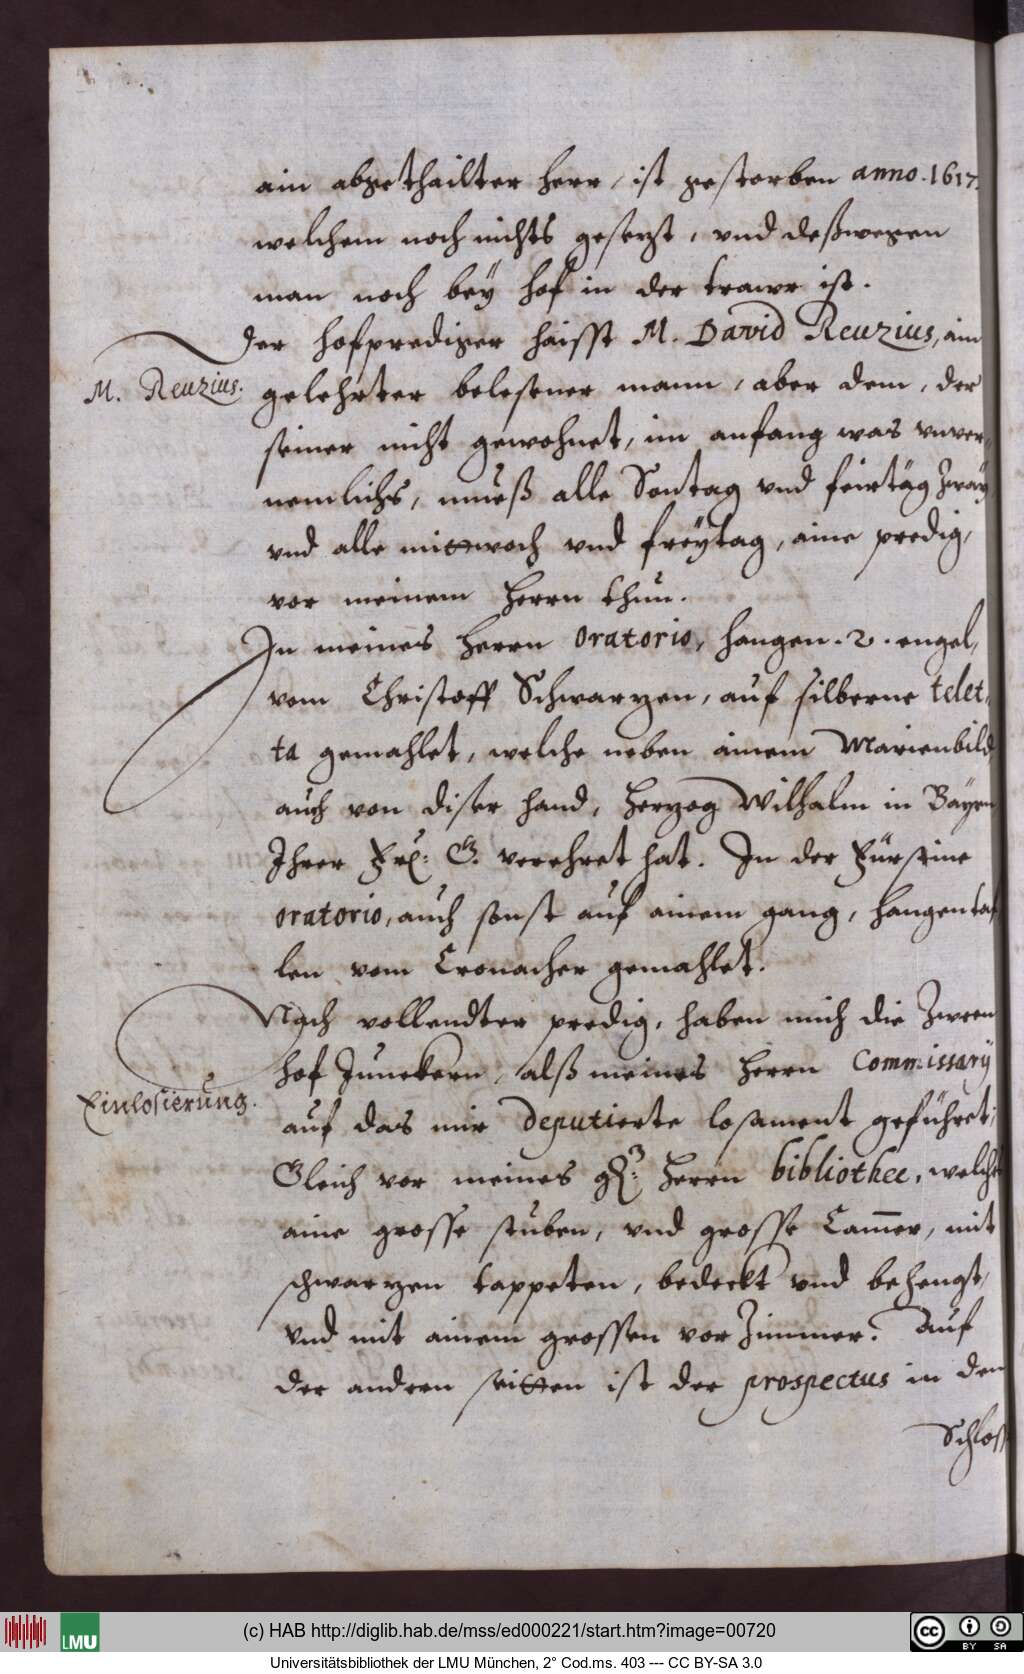 ain abgethailter herr, ist gestorben anno. 1617.
welchem noch nichts gesetzt, vnd deßwegen
man noch beÿ hof in der trawr ist.
Der hofprediger haisst M. David Reuzius, ain
M. Reuzius.
gelehrter belesener mann, aber dem, der
seiner nicht gewohnet, im anfang was vnver-
nemlichs, mueß alle Sontag vnd feirtäg zwaÿ
vnd alle mittwoch vnd freÿtag, aine predig,
vor meinem herrn thun.
In meines herrn oratorio, hangen .2. engel,
vom Christoff Schwarzen, auf silberne telet-
ta gemahlet, welche neben ainem Marienbild
auch von diser hand, herzog Wilhalm in Bayrn
Ihrer Frl: G. verehret hat. In der Fürstine
oratorio, auch sonst auf ainem gang, hangen taf
len vom Cronacher gemahlet.
Nach vollendter predig, haben mich die Zween
hof Junckern, alß meines herrn Commissarÿ
Einlosierung.
auf das mir deputierte losament geführet;
Gleich vor meines gl: herrn bibliothec, welche
aine grosse stuben, vnd grosse Cam̄er, mit
schwarzen tappeten, bedeckt vnd behengt,
vnd mit ainem grossen vor Zimmer. Auf
der andern seitten ist der prospectus in den
Schloss
(c) HAB http://diglib.hab.de/mss/ed000221/start.htm?image=00720
Universitätsbibliothek der LMU München, 2° Cod.ms. 403 --- CC BY-SA 3.0
LMU
cc BY SA